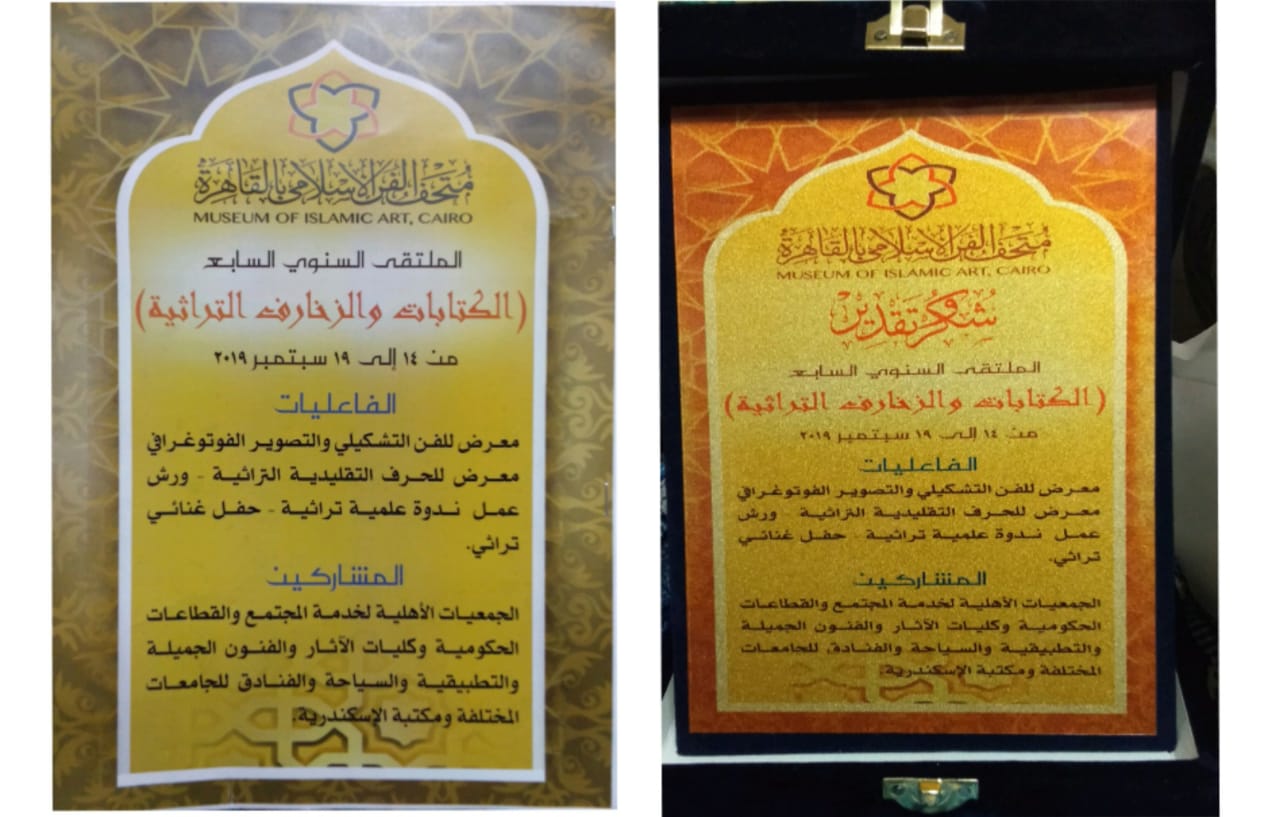 متحف الفن الإسلامي بالقاهرة
MUSEUM OF ISLAMIC ART, CAIRO
الملتقى السنوي السابع
(الكتابات والزخارف التراثية)
من ١٤ إلى ١٩ سبتمبر ٢٠١٩
الفاعليات
معرض للفن التشكيلي والتصوير الفوتوغرافي
معرض للحرف التقليدية التراثية - ورش
عمل ندوة علمية تراثية - حفل غنائي
تراثي.
المشاركين
الجمعيات الأهلية لخدمة المجتمع والقطاعات
الحكومية وكليات الآثار والفنون الجميلة
والتطبيقية والسياحة والفنادق للجامعات
المختلفة ومكتبة الإسكندرية.
متحف الفن الإسلامي بالقاهرة
MUSEUM OF ISLAMIC ART, CAIRO
شكر وتقدير
الملتقى السنوي السابع
(الكتابات والزخارف التراثية)
من ١٤ إلى ١٩ سبتمبر ٢٠١٩
الفاعليات
معرض للفن التشكيلي والتصوير الفوتوغرافي
معرض للحرف التقليدية التراثية ورش
عمل ندوة علمية تراثية حفل غنائي
تراثي.
المشاركين
الجمعيات الأهلية لخدمة المجتمع والقطاعات
الحكومية وكليات الآثار والفنون الجميلة
والتطبيقية والسياحة والفنادق للجامعات
المختلفة ومكتبة الإسكندرية.